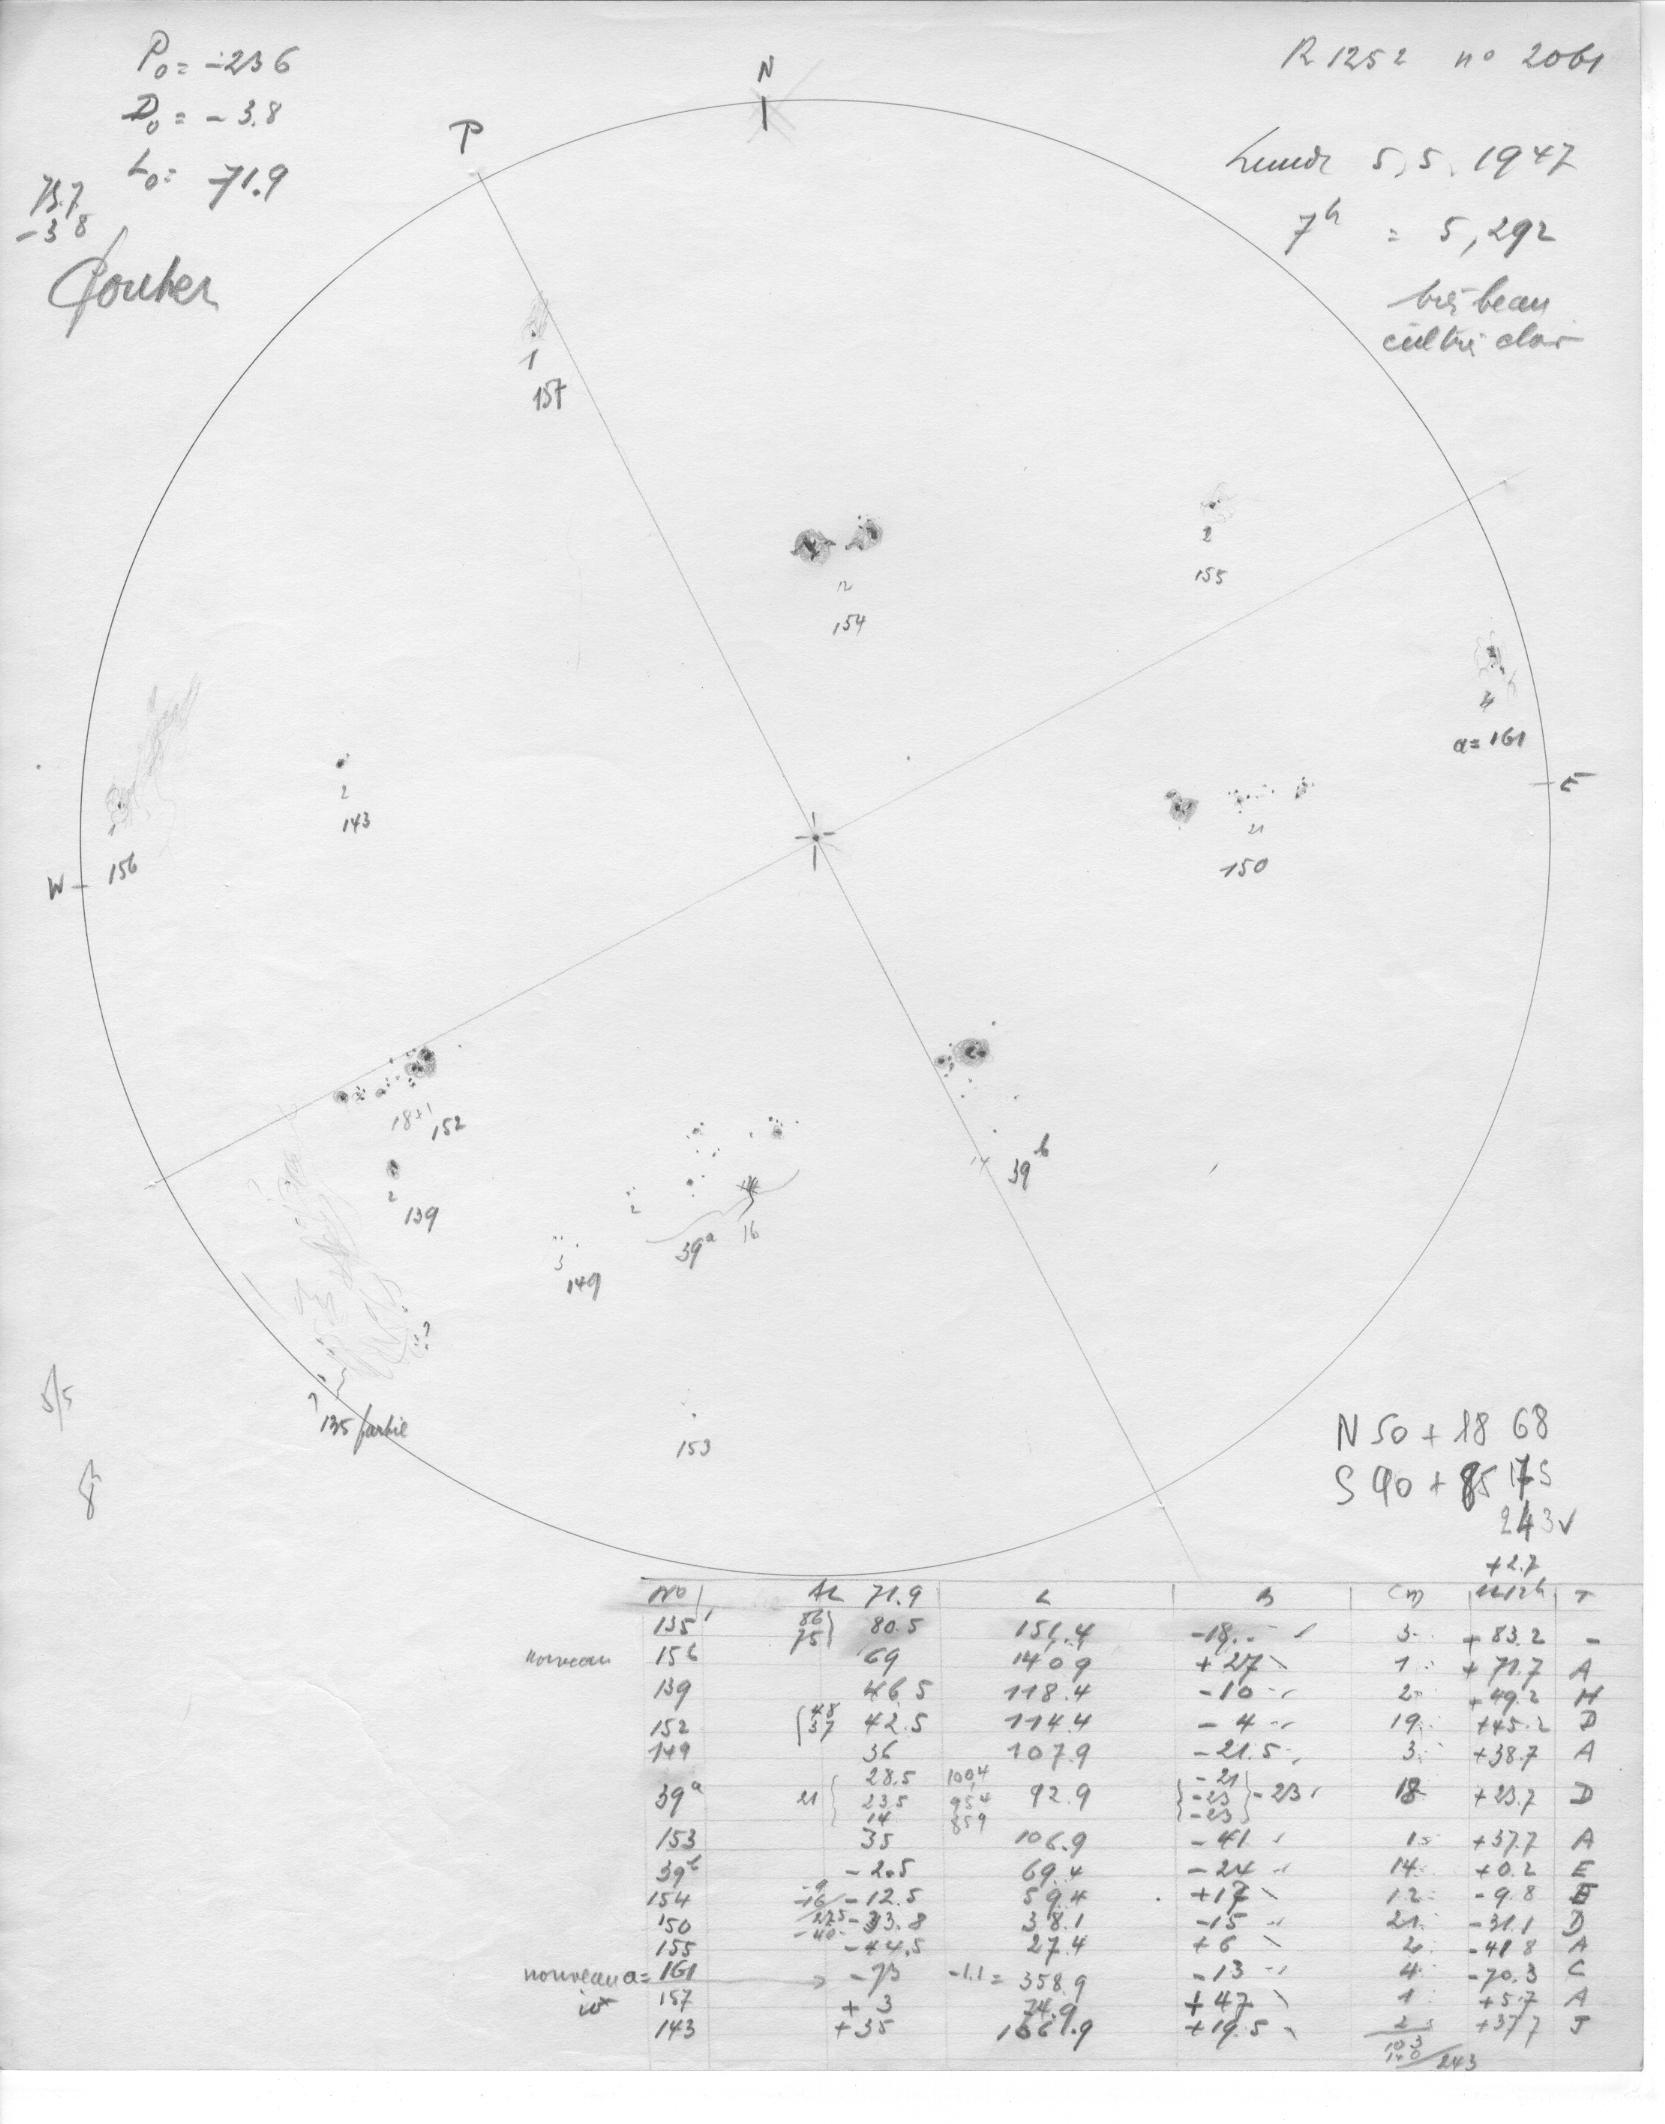 P₀ = -23.6
D₀ = - 3.8
L₀ = 71.9
75.7
-3.8
N
P
R 1252 no 2061
Lundi 5,5,1947
7h = 5,292
très beau
1
157
12
154
2
155
4
a = 161
E
2
143
1
156
W
21
150
18+1 152
2
139
39b
14
2
39a 16
3
149
?
?
135 partie
153
5/5
8
N 50 + 18 68
S 90 + 85 175
243 ✓
+2.7
No AL 71.9 L B T
135 86 75 80.5 151.4 -18 3 +83.2 -
nouveau 156 69 140.9 +27 1 +71.7 A
139 46.5 118.4 -10 2 +49.2 H
152 48 37 42.5 114.4 -4 19 +45.2 D
149 36 107.9 -21.5 3 +38.7 A
39a 21 28.5 23.5 14 100.4 95.4 85.9 92.9 -21 -23 -23 -23 18 +23.7 D
153 35 106.9 -41 1 +37.7 A
39b -2.5 69.4 -24 14 +0.2 E
154 -9 -16 -12.5 59.4 +17 12 -9.8 E
150 -27.5 -40 -33.8 38.1 -15 21 -31.1 D
155 -44.5 27.4 +6 2 -41.8 A
nouveau a = 161 -73 -1.1 = 358.9 -13 4 -70.3 C
157 +3 74.9 +47 1 +5.7 A
143 +35 106.9 +19.5 2 +37.7 J
103
140 / 243